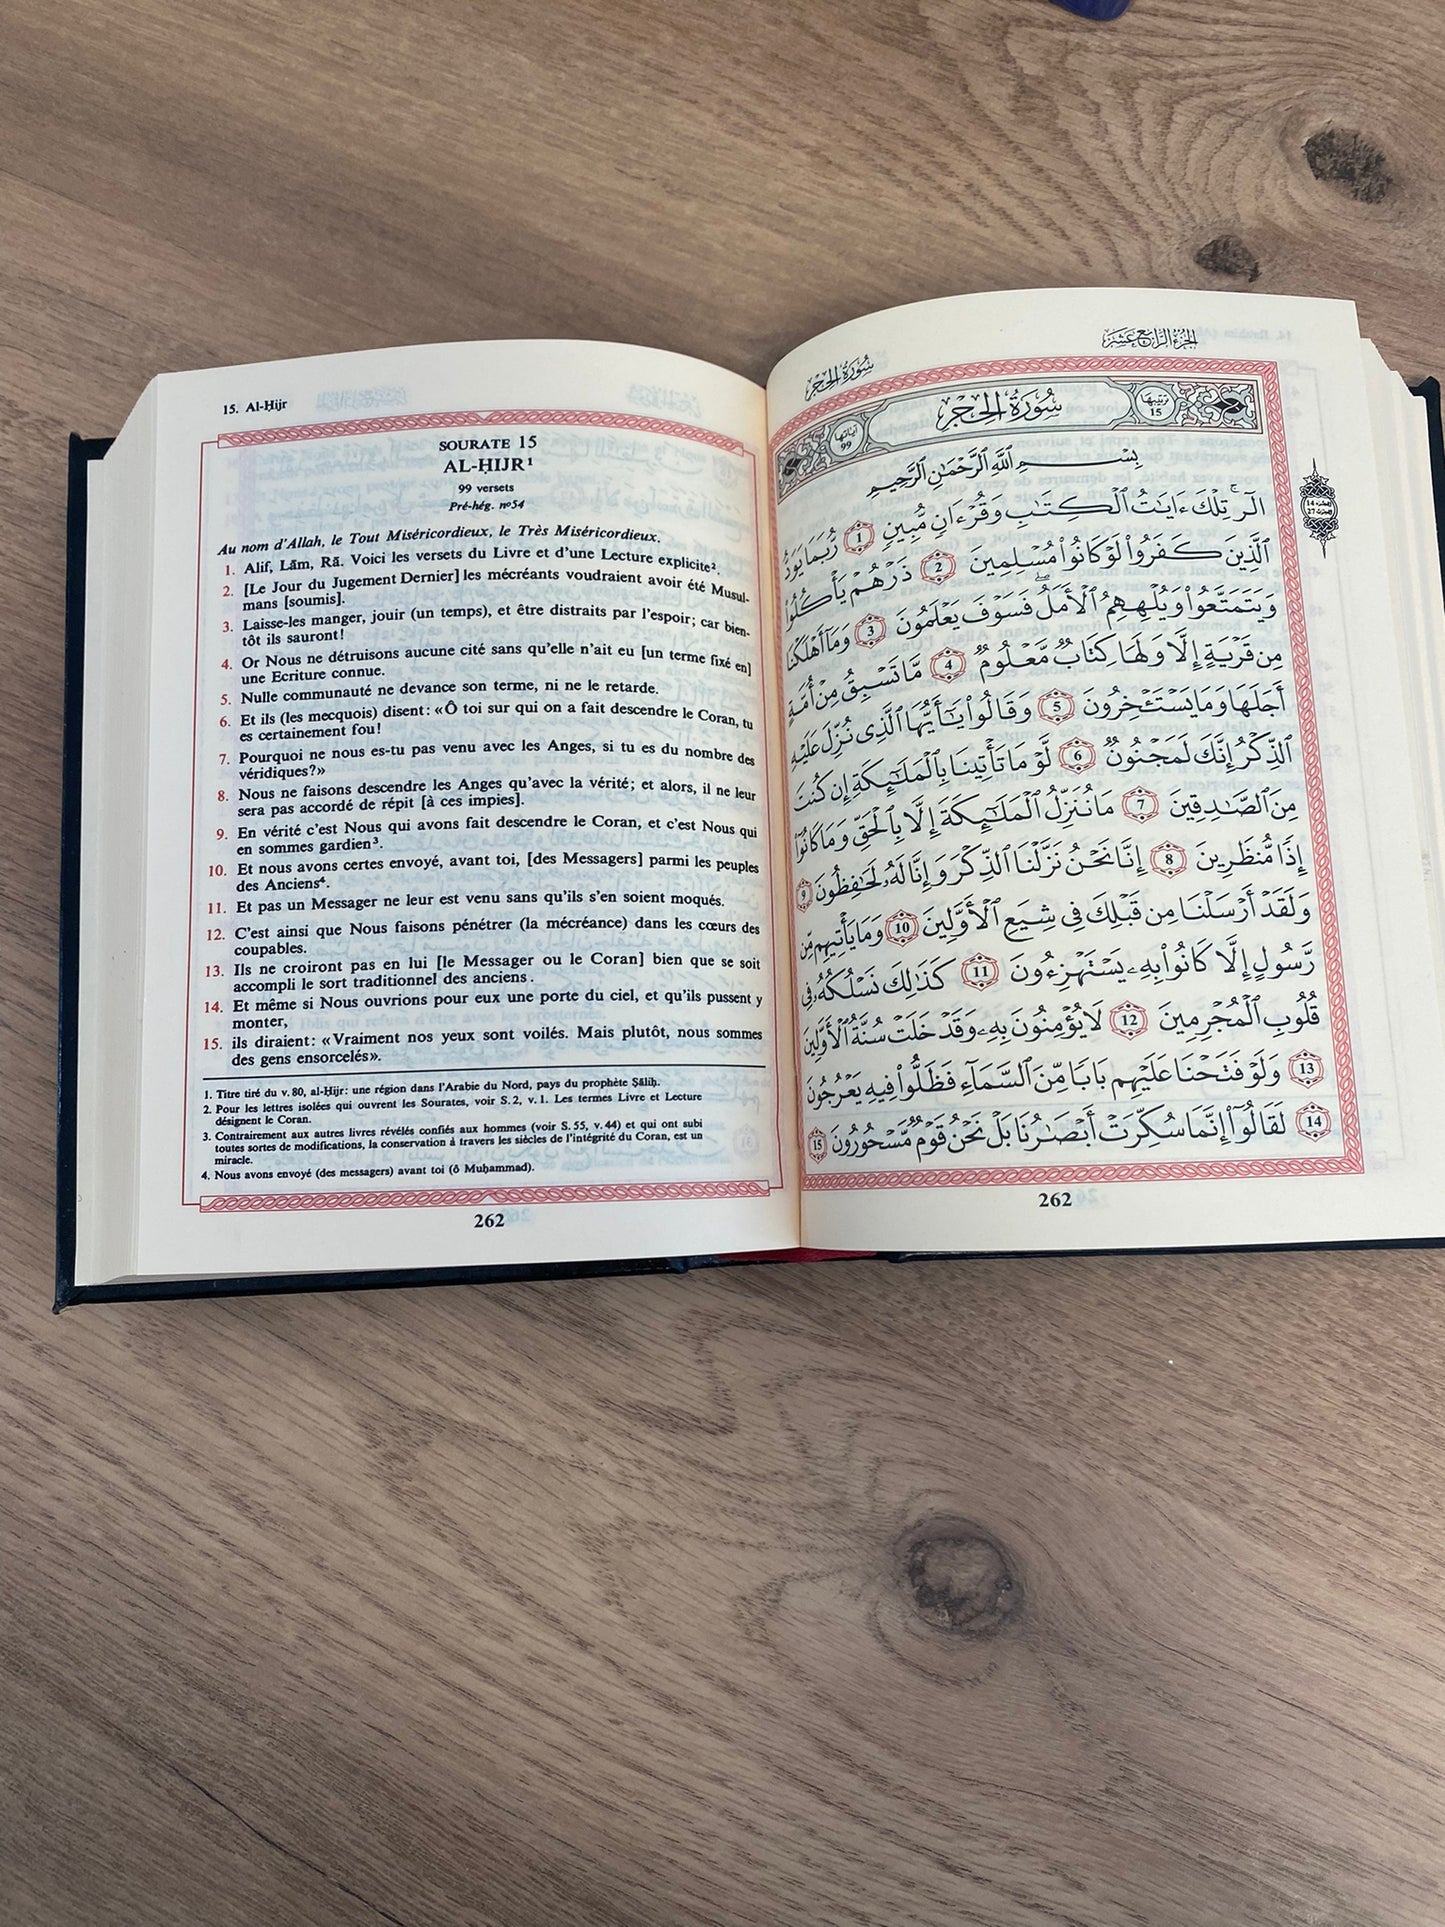 15. Al-Ḥijr
SOURATE 15
AL-ḤIJR¹
99 versets
Pré-hég. nº54
Au nom d'Allah, le Tout Miséricordieux, le Très Miséricordieux.
1. Alif, Lām, Rā. Voici les versets du Livre et d'une Lecture explicite².
2. [Le Jour du Jugement Dernier] les mécréants voudraient avoir été Musul-
mans [soumis].
3. Laisse-les manger, jouir (un temps), et être distraits par l'espoir; car bien-
tôt ils sauront!
4. Or Nous ne détruisons aucune cité sans qu'elle n'ait eu [un terme fixé en]
une Ecriture connue.
5. Nulle communauté ne devance son terme, ni ne le retarde.
6. Et ils (les mecquois) disent: «Ô toi sur qui on a fait descendre le Coran, tu
es certainement fou!
7. Pourquoi ne nous es-tu pas venu avec les Anges, si tu es du nombre des
véridiques?»
8. Nous ne faisons descendre les Anges qu'avec la vérité; et alors, il ne leur
sera pas accordé de répit [à ces impies].
9. En vérité c'est Nous qui avons fait descendre le Coran, et c'est Nous qui
en sommes gardien³.
10. Et nous avons certes envoyé, avant toi, [des Messagers] parmi les peuples
des Anciens⁴.
11. Et pas un Messager ne leur est venu sans qu'ils s'en soient moqués.
12. C'est ainsi que Nous faisons pénétrer (la mécréance) dans les cœurs des
coupables.
13. Ils ne croiront pas en lui [le Messager ou le Coran] bien que se soit
accompli le sort traditionnel des anciens.
14. Et même si Nous ouvrions pour eux une porte du ciel, et qu'ils pussent y
monter,
15. ils diraient: «Vraiment nos yeux sont voilés. Mais plutôt, nous sommes
des gens ensorcelés».
1. Titre tiré du v. 80, al-Ḥijr: une région dans l'Arabie du Nord, pays du prophète Ṣāliḥ.
2. Pour les lettres isolées qui ouvrent les Sourates, voir S. 2, v. 1. Les termes Livre et Lecture
désignent le Coran.
3. Contrairement aux autres livres révélés confiés aux hommes (voir S. 55, v. 44) et qui ont subi
toutes sortes de modifications, la conservation à travers les siècles de l'intégrité du Coran, est un
miracle.
4. Nous avons envoyé (des messagers) avant toi (ô Muḥammad).
262
الجُزءُ الرَّابِعَ عَشَرَ
سُورَةُ الحِجْرِ
ترتيبها 15
سُورَةُ الحِجْرِ
آياتها 99
بِسْمِ ٱللَّهِ ٱلرَّحْمَٰنِ ٱلرَّحِيمِ
الٓرۚ تِلْكَ ءَايَٰتُ ٱلْكِتَٰبِ وَقُرْءَانٍ مُّبِينٍ 1 رُّبَمَا يَوَدُّ
ٱلَّذِينَ كَفَرُوا۟ لَوْ كَانُوا۟ مُسْلِمِينَ 2 ذَرْهُمْ يَأْكُلُوا۟
وَيَتَمَتَّعُوا۟ وَيُلْهِهِمُ ٱلْأَمَلُ ۖ فَسَوْفَ يَعْلَمُونَ 3 وَمَآ أَهْلَكْنَا
مِن قَرْيَةٍ إِلَّا وَلَهَا كِتَابٌ مَّعْلُومٌ 4 مَّا تَسْبِقُ مِنْ أُمَّةٍ
أَجَلَهَا وَمَا يَسْتَـْٔخِرُونَ 5 وَقَالُوا۟ يَٰٓأَيُّهَا ٱلَّذِى نُزِّلَ عَلَيْهِ
ٱلذِّكْرُ إِنَّكَ لَمَجْنُونٌ 6 لَّوْ مَا تَأْتِينَا بِٱلْمَلَٰٓئِكَةِ إِن كُنتَ
مِنَ ٱلصَّٰدِقِينَ 7 مَا نُنَزِّلُ ٱلْمَلَٰٓئِكَةَ إِلَّا بِٱلْحَقِّ وَمَا كَانُوٓا۟
إِذًا مُّنظَرِينَ 8 إِنَّا نَحْنُ نَزَّلْنَا ٱلذِّكْرَ وَإِنَّا لَهُۥ لَحَٰفِظُونَ 9
وَلَقَدْ أَرْسَلْنَا مِن قَبْلِكَ فِى شِيَعِ ٱلْأَوَّلِينَ 10 وَمَا يَأْتِيهِم مِّن
رَّسُولٍ إِلَّا كَانُوا۟ بِهِۦ يَسْتَهْزِءُونَ 11 كَذَٰلِكَ نَسْلُكُهُۥ فِى
قُلُوبِ ٱلْمُجْرِمِينَ 12 لَا يُؤْمِنُونَ بِهِۦ وَقَدْ خَلَتْ سُنَّةُ ٱلْأَوَّلِينَ
13 وَلَوْ فَتَحْنَا عَلَيْهِم بَابًا مِّنَ ٱلسَّمَآءِ فَظَلُّوا۟ فِيهِ يَعْرُجُونَ
14 لَقَالُوٓا۟ إِنَّمَا سُكِّرَتْ أَبْصَٰرُنَا بَلْ نَحْنُ قَوْمٌ مَّسْحُورُونَ 15
262